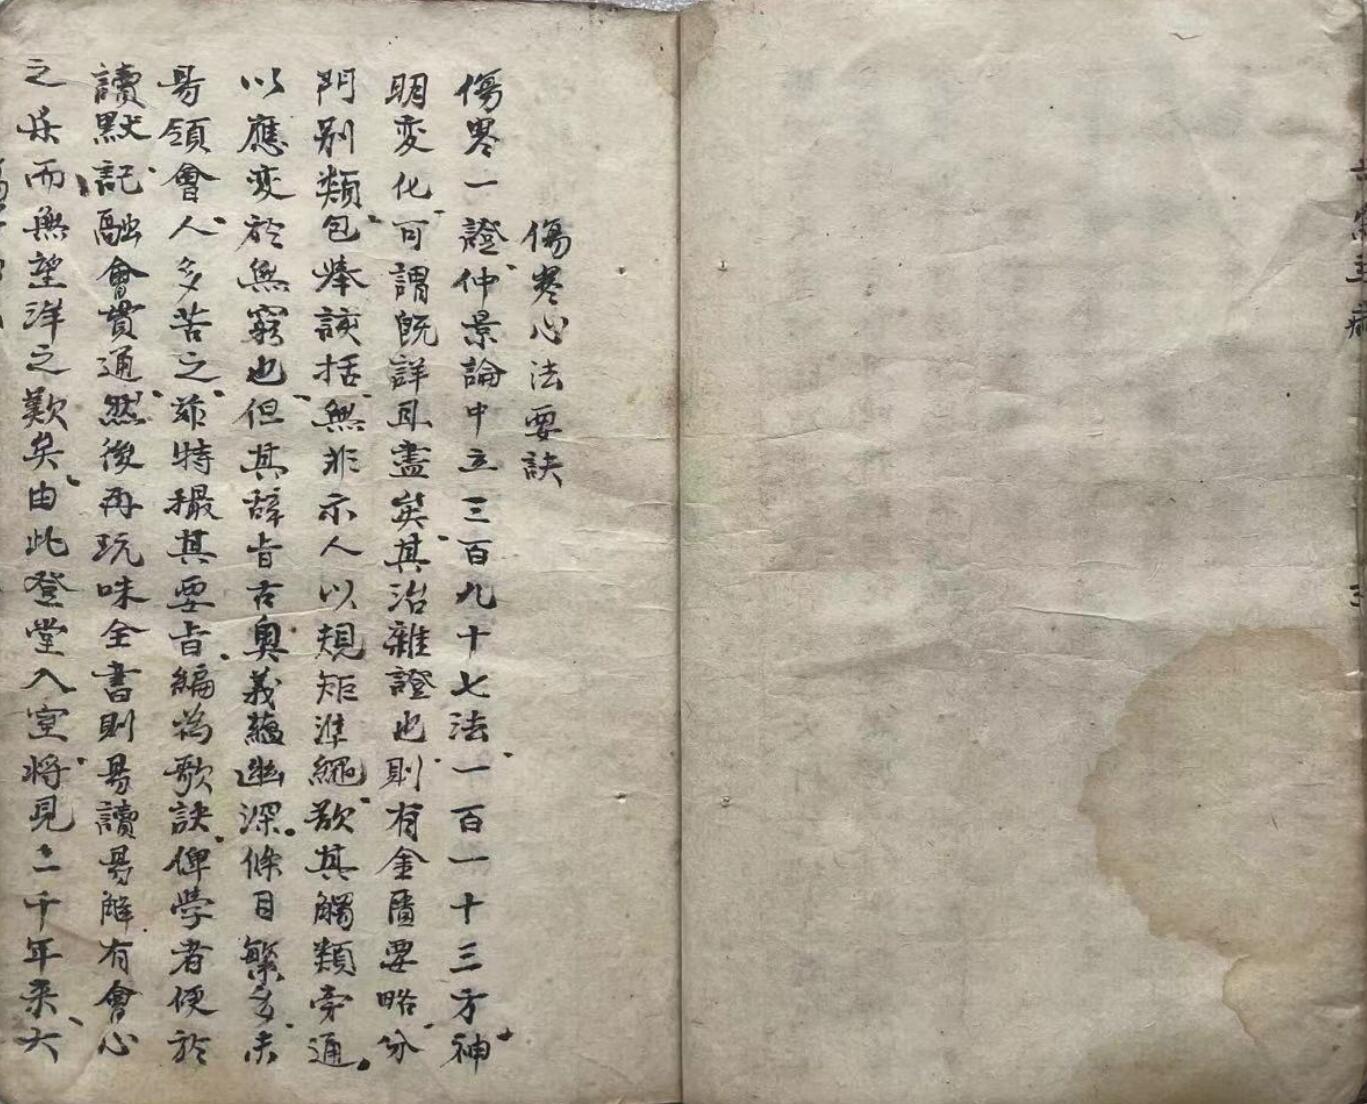 傷寒心法要訣
傷寒一證仲景論中立三百九十七法一百一十三方神
明変化可謂既詳且盡矣其治雜證也則有金匱要略分
門別類包捧該括無非示人以規矩準繩欲其觸類旁通
以應变於無窮也但其辞旨古奥義蘊幽深條目繁多未
易領會人多苦之茲特撮其要旨編為歌訣俾學者便於
讀默記融會貫通然後再玩味全書則易讀易解有會心
之樂而無望洋之歎矣由此登堂入室将見二千年来大